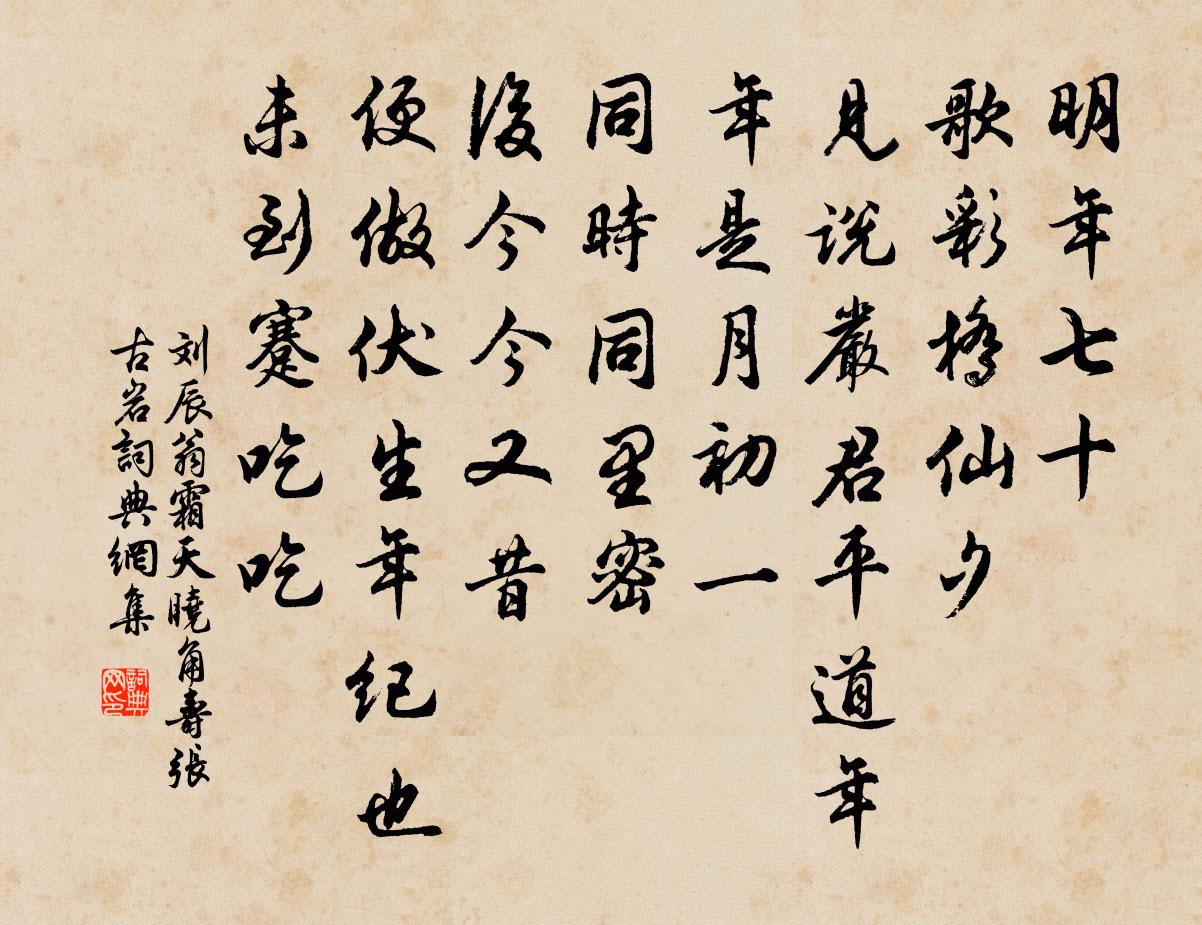 明年七十
歌彩橋仙夕
見説嚴君平道年
年是月初一
同時同里密
後今今又昔
便做伏生年纪也
未到蹇吃吃
刘辰翁霜天曉角壽張
古岩詞典網集
詞典
网印